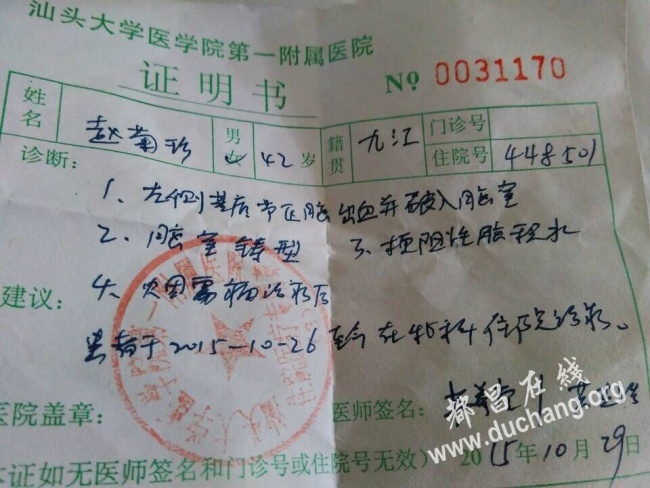 汕头大学医学院第一附属医院
证明书 № 0031170
姓名 赵菊珍 男女 42岁 籍贯 九江 门诊号
住院号 448501
诊断：
1、左侧基底节区脑出血并破入脑室
2、脑室铸型 3、梗阻性脑积水
建议： 4、
患者于2015-10-26至今在我科住院诊疗。
医院盖章： 医师签名：
本证如无医师签名和门诊号或住院号无效） 2015年10月29日
都昌在线
www.duchang.org